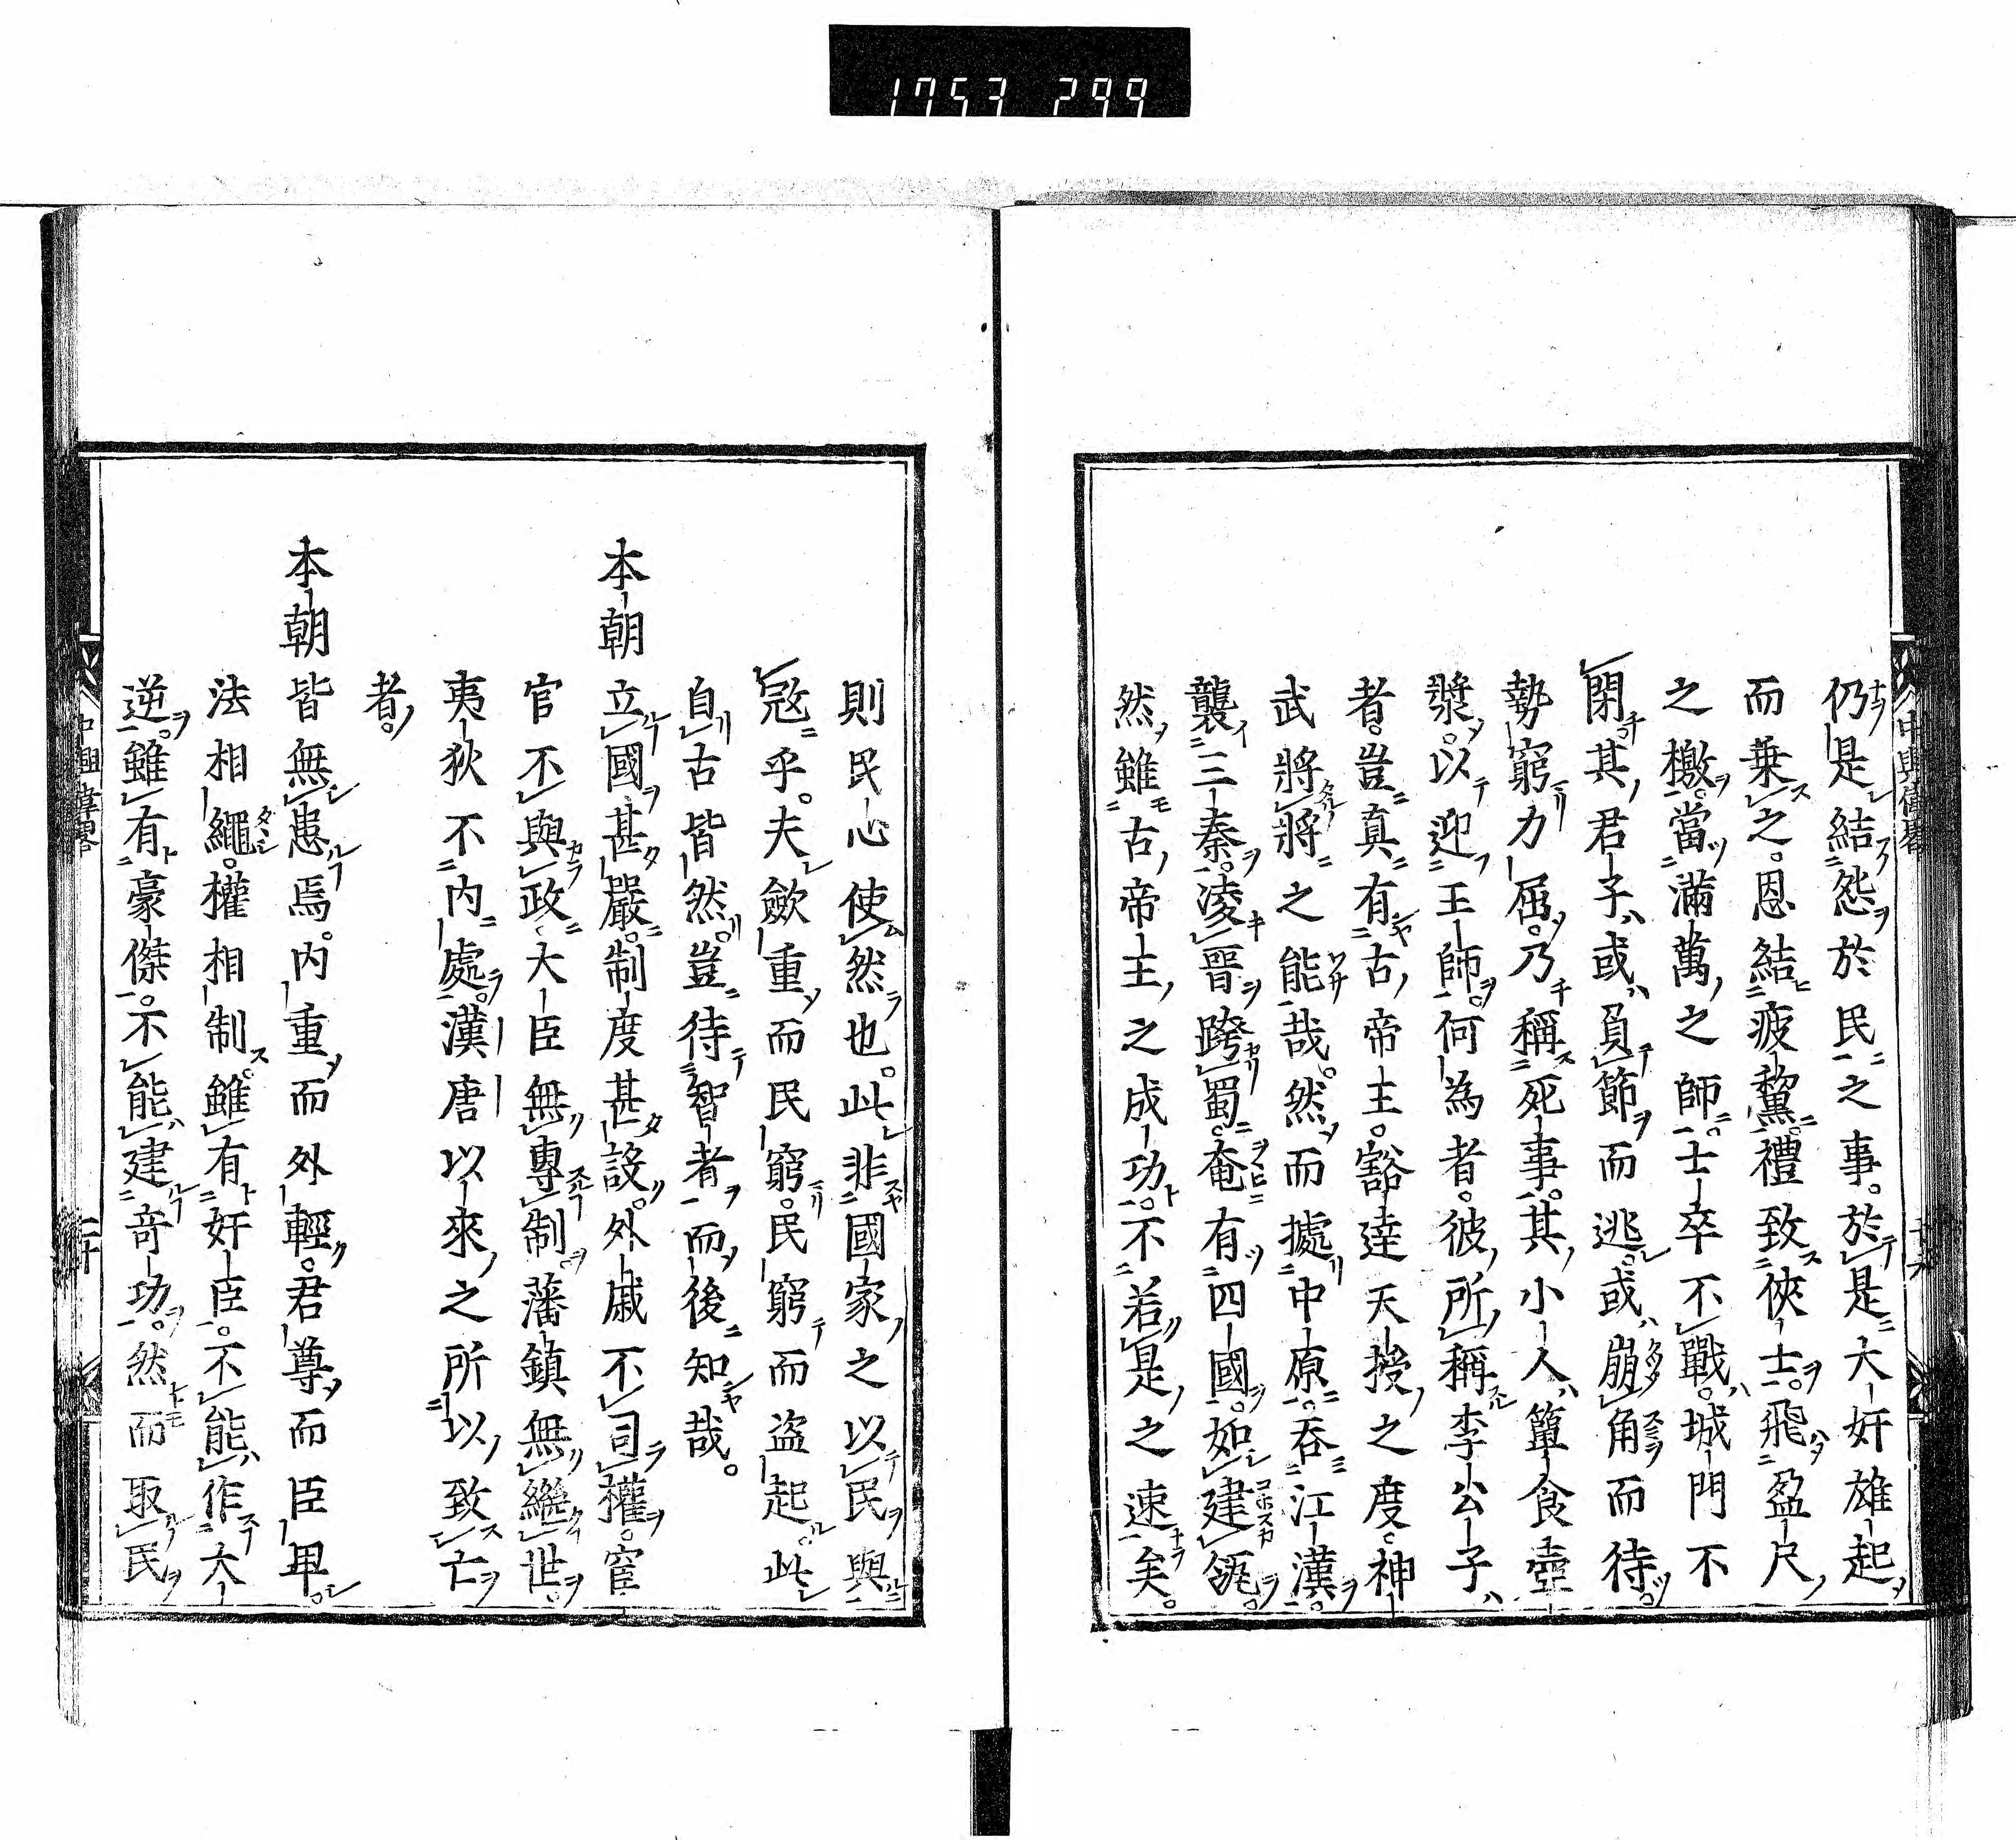 1753 299
仍是結怨於民之事。於是大奸雄起
而乗之。恩結疲黧。禮致俠士。飛盈尺
之檄。當滿萬之師。士卒不戰。城門不
閉。其君子或負節而逃。或崩角而待。
勢窮力屈。乃稱死事。其小人簞食壺
漿。以迎王師。何為者。彼所稱李公子
者。豈真有古帝主。豁達天授之度。神
武將將之能哉。然而據中原。吞江漢。
襲三秦。凌晉跨蜀。奄有四國。如建瓴。
然雖古帝主之成功。不若是之速矣。
中興偉畧
十九
則民心使然也。此非國家之以民與
冦乎。夫斂重而民窮。民窮而盗起。此
自古皆然。豈待智者而後知哉。
本朝立國甚嚴。制度甚詼。外戚不司權。宦
官不與政。大臣無專制。藩鎮無繼世。
夷狄不内處。漢唐以來之所以致亡
者。
本朝皆無患焉。内重而外輕。君尊而臣卑。
法相繩。權相制。雖有奸臣。不能作大
逆。雖有豪傑。不能建奇功。然而取民
中興偉畧
二十